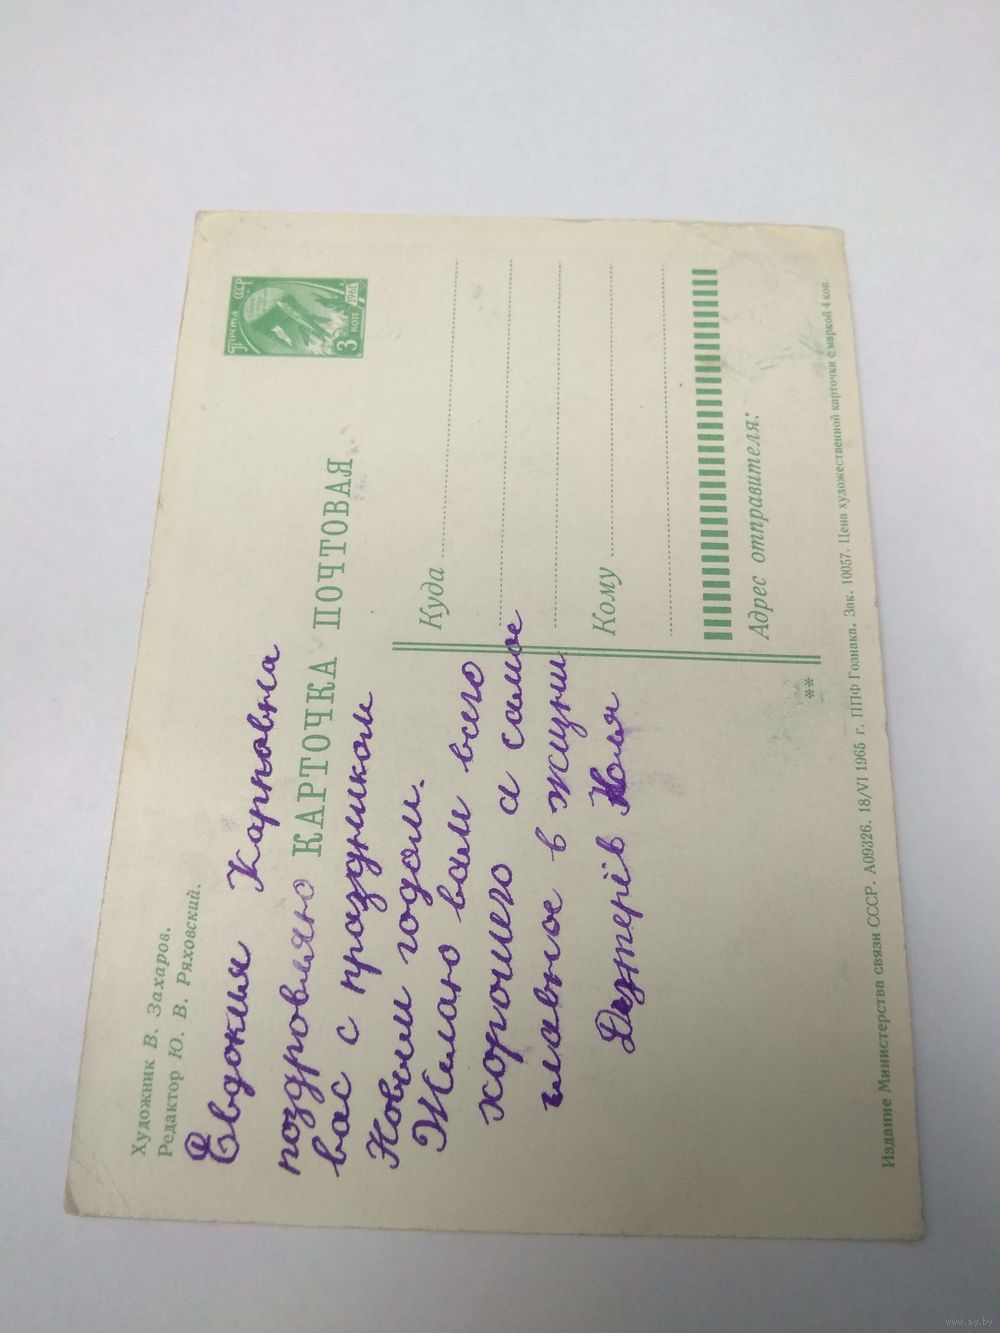 Художник В. Захаров.
Редактор Ю. В. Ряховский.
Евдокия Карповна
поздровляю
вас с праздником
Новым годом.
Желаю вам всего
хорошего а самое
главное в жизни
Коля
Почта СССР
3 коп 1961
КАРТОЧКА ПОЧТОВАЯ
Куда
Кому
Адрес отправителя:
**
Издание Министерства связи СССР. А09326. 18/VI 1965 г. ППФ Гознака. Зак. 10057. Цена художественной карточки с маркой 4 коп.
www.ay.by